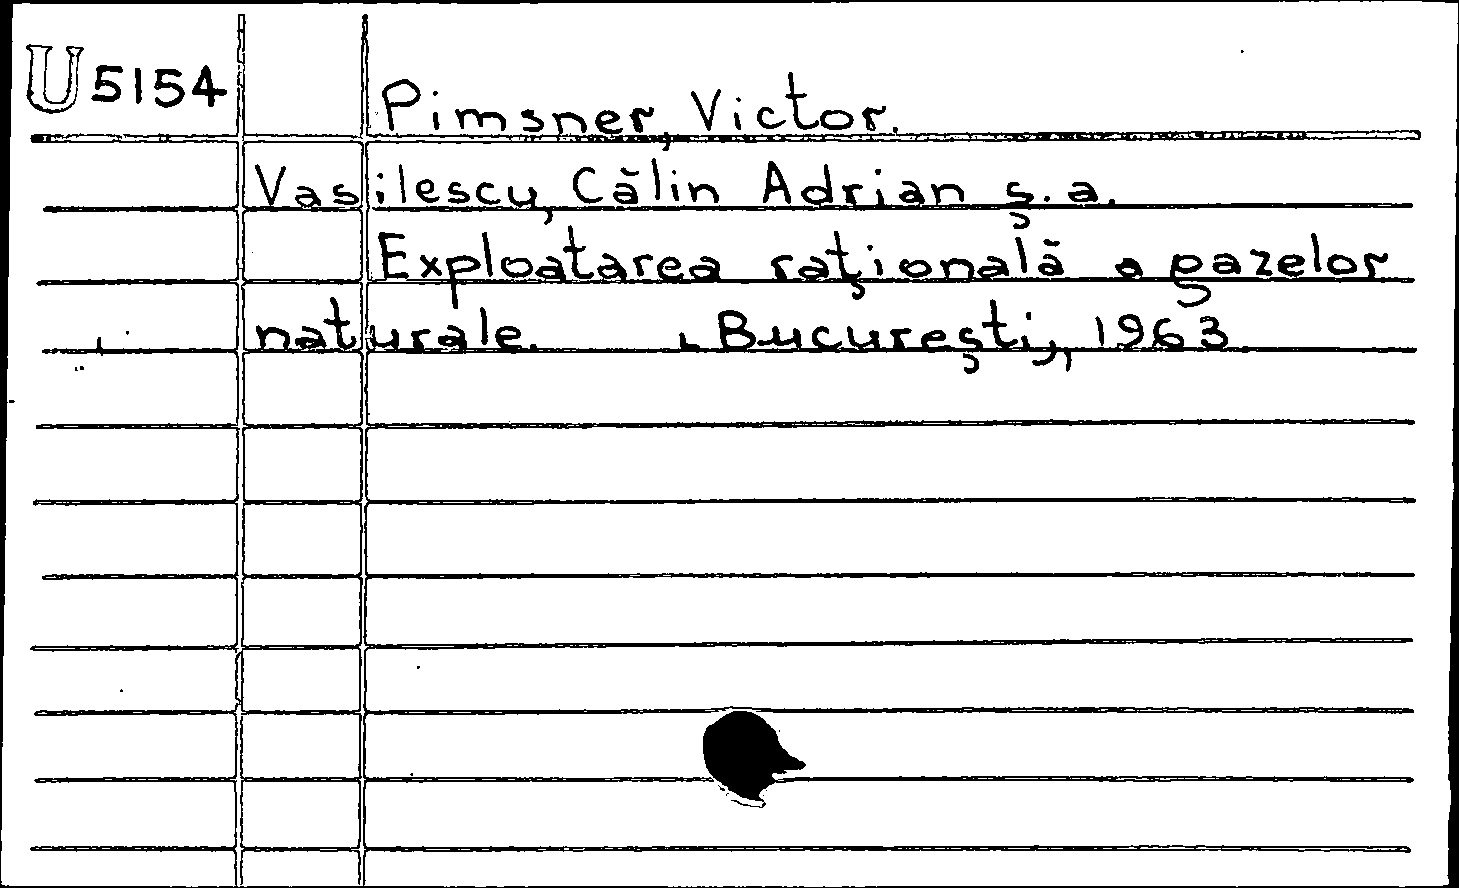 U 5154 Pimsner, Victor.
Vasilescu, Călin Adrian ş.a.
Exploatarea raţională a gazelor
naturale. Bucureşti, 1963.